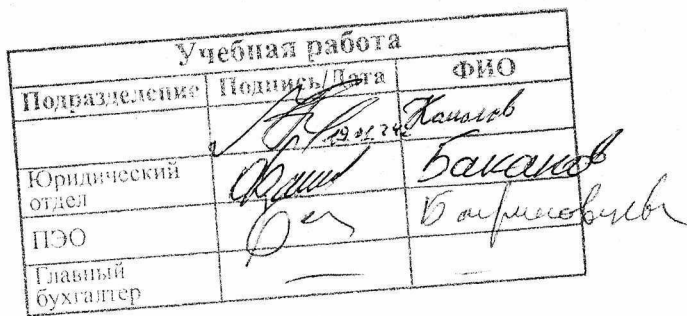 Учебная работа
Подразделение Подпись/Дата ФИО
19.01.24г
Юридический отдел Баканов
ПЭО
Главный бухгалтер — —